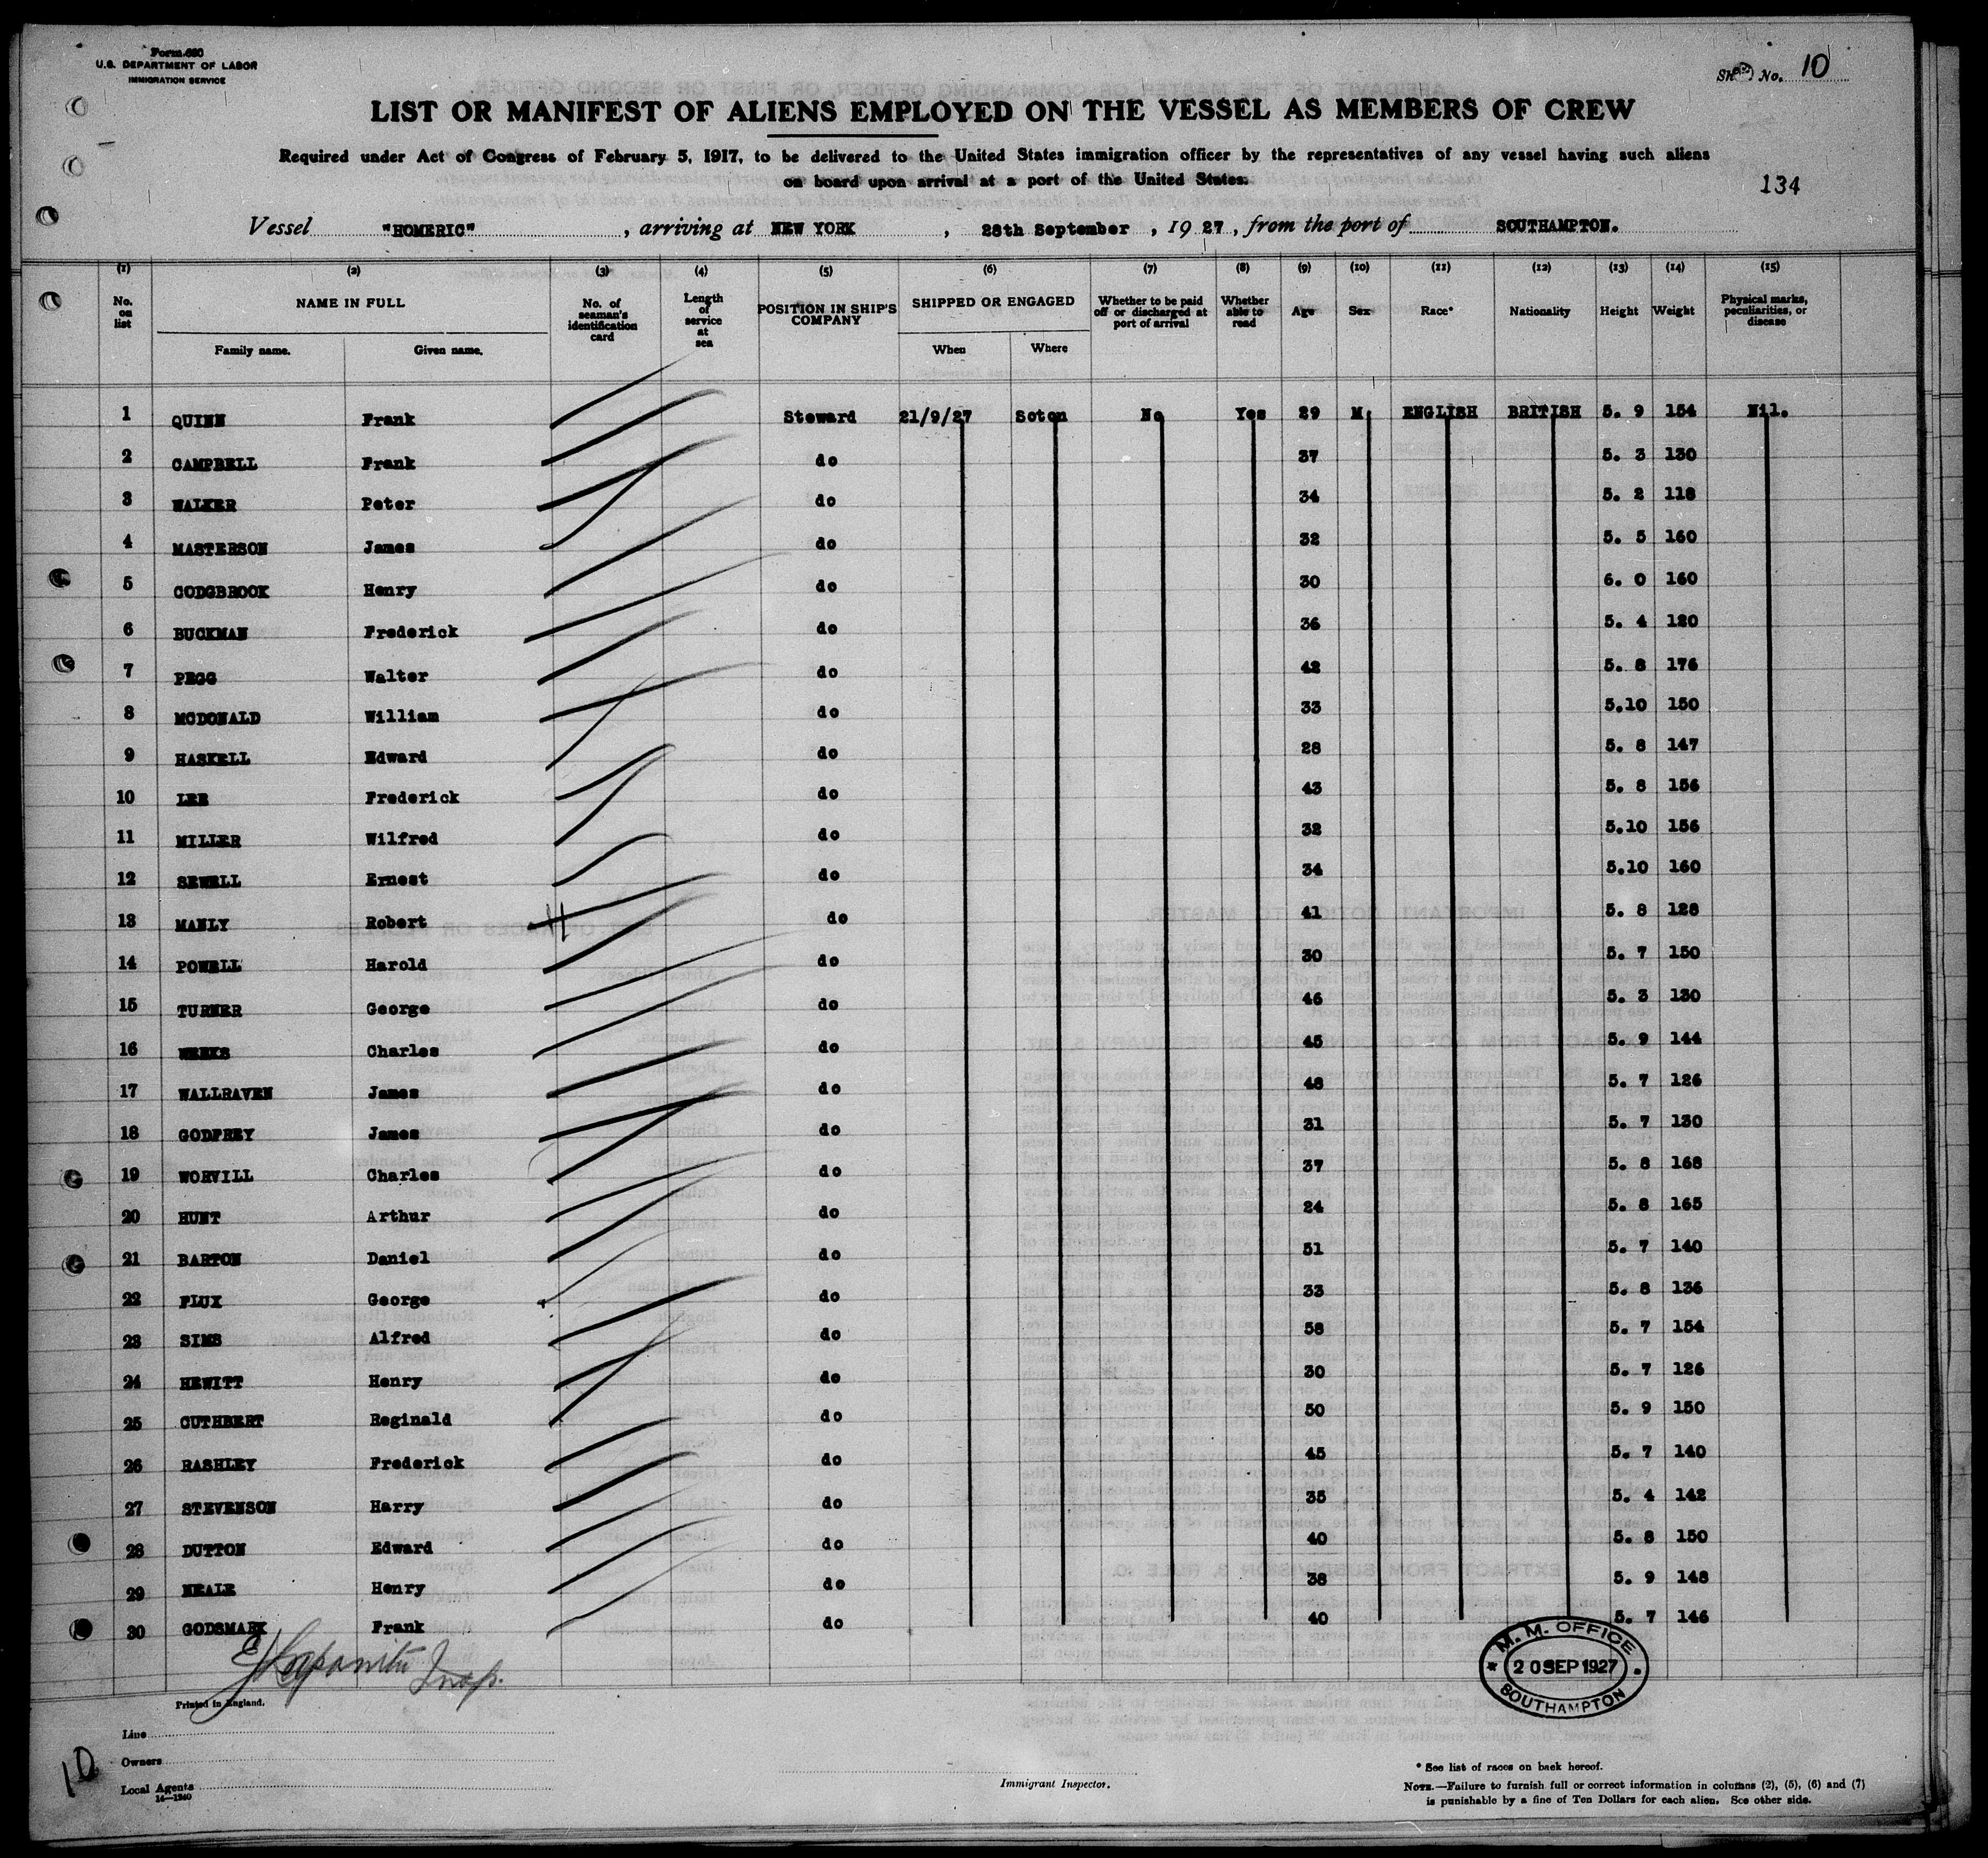 Form 680
U.S. DEPARTMENT OF LABOR
IMMIGRATION SERVICE
No. 10
LIST OR MANIFEST OF ALIENS EMPLOYED ON THE VESSEL AS MEMBERS OF CREW
Required under Act of Congress of February 5, 1917, to be delivered to the United States immigration officer by the representatives of any vessel having such aliens
on board upon arrival at a port of the United States.
134
Vessel "HOMERIC", arriving at NEW YORK, 28th September, 1927, from the port of SOUTHAMPTON.
(1) (2) (3) (4) (5) (6) (7) (8) (9) (10) (11) (12) (13) (14) (15)
No. on list NAME IN FULL No. of seaman's identification card Length of service at sea POSITION IN SHIP'S COMPANY SHIPPED OR ENGAGED Whether to be paid off or discharged at port of arrival Whether able to read Age Sex Race* Nationality Height Weight Physical marks, peculiarities, or disease
Family name. Given name. When Where
1 QUINN Frank Steward 21/9/27 Soton No Yes 29 M. ENGLISH BRITISH 5. 9 154 Nil.
2 CAMPBELL Frank do 37 5. 3 130
3 WALKER Peter do 34 5. 2 118
4 MASTERSON James do 32 5. 5 160
5 CODGBROOK Henry do 30 6. 0 160
6 BUCKMAN Frederick do 36 5. 4 120
7 PEGG Walter do 42 5. 8 176
8 MCDONALD William do 33 5.10 150
9 HASKELL Edward do 28 5. 8 147
10 LEE Frederick do 43 5. 8 156
11 MILLER Wilfred do 32 5.10 156
12 SEWELL Ernest do 34 5.10 160
13 MANLY Robert do 41 5. 8 128
14 POWELL Harold do 30 5. 7 150
15 TURNER George do 46 5. 3 130
16 WEEKS Charles do 45 5. 9 144
17 WALLRAVEN James do 48 5. 7 126
18 GODFREY James do 31 5. 7 130
19 WORVILL Charles do 37 5. 8 168
20 HUNT Arthur do 24 5. 8 165
21 BARTON Daniel do 51 5. 7 140
22 FLUX George do 33 5. 8 136
23 SIMS Alfred do 58 5. 7 154
24 HEWITT Henry do 30 5. 7 126
25 CUTHBERT Reginald do 50 5. 9 150
26 RASHLEY Frederick do 45 5. 7 140
27 STEVENSON Harry do 35 5. 4 142
28 DUTTON Edward do 40 5. 8 150
29 NEALE Henry do 38 5. 9 148
30 GODSMARK Frank do 40 5. 7 146
Insp.
M. M. OFFICE
20 SEP 1927
SOUTHAMPTON
Printed in England.
Line
Owners
Local Agents
14—1240
10
Immigrant Inspector.
* See list of races on back hereof.
NOTE.—Failure to furnish full or correct information in columns (2), (5), (6) and (7)
is punishable by a fine of Ten Dollars for each alien. See other side.